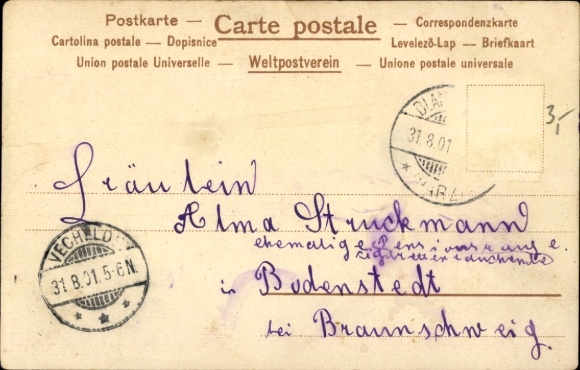 Postkarte — Carte postale — Correspondenzkarte
Cartolina postale — Dopisnice Levelező-Lap — Briefkaart
Union postale Universelle — Weltpostverein — Unione postale universale
31.8.01
3,-
Fräulein
Alma Struckmann
ehemalige
in Bodenstedt
bei Braunschweig.
VECHELDE
31.8.01.5-6N.